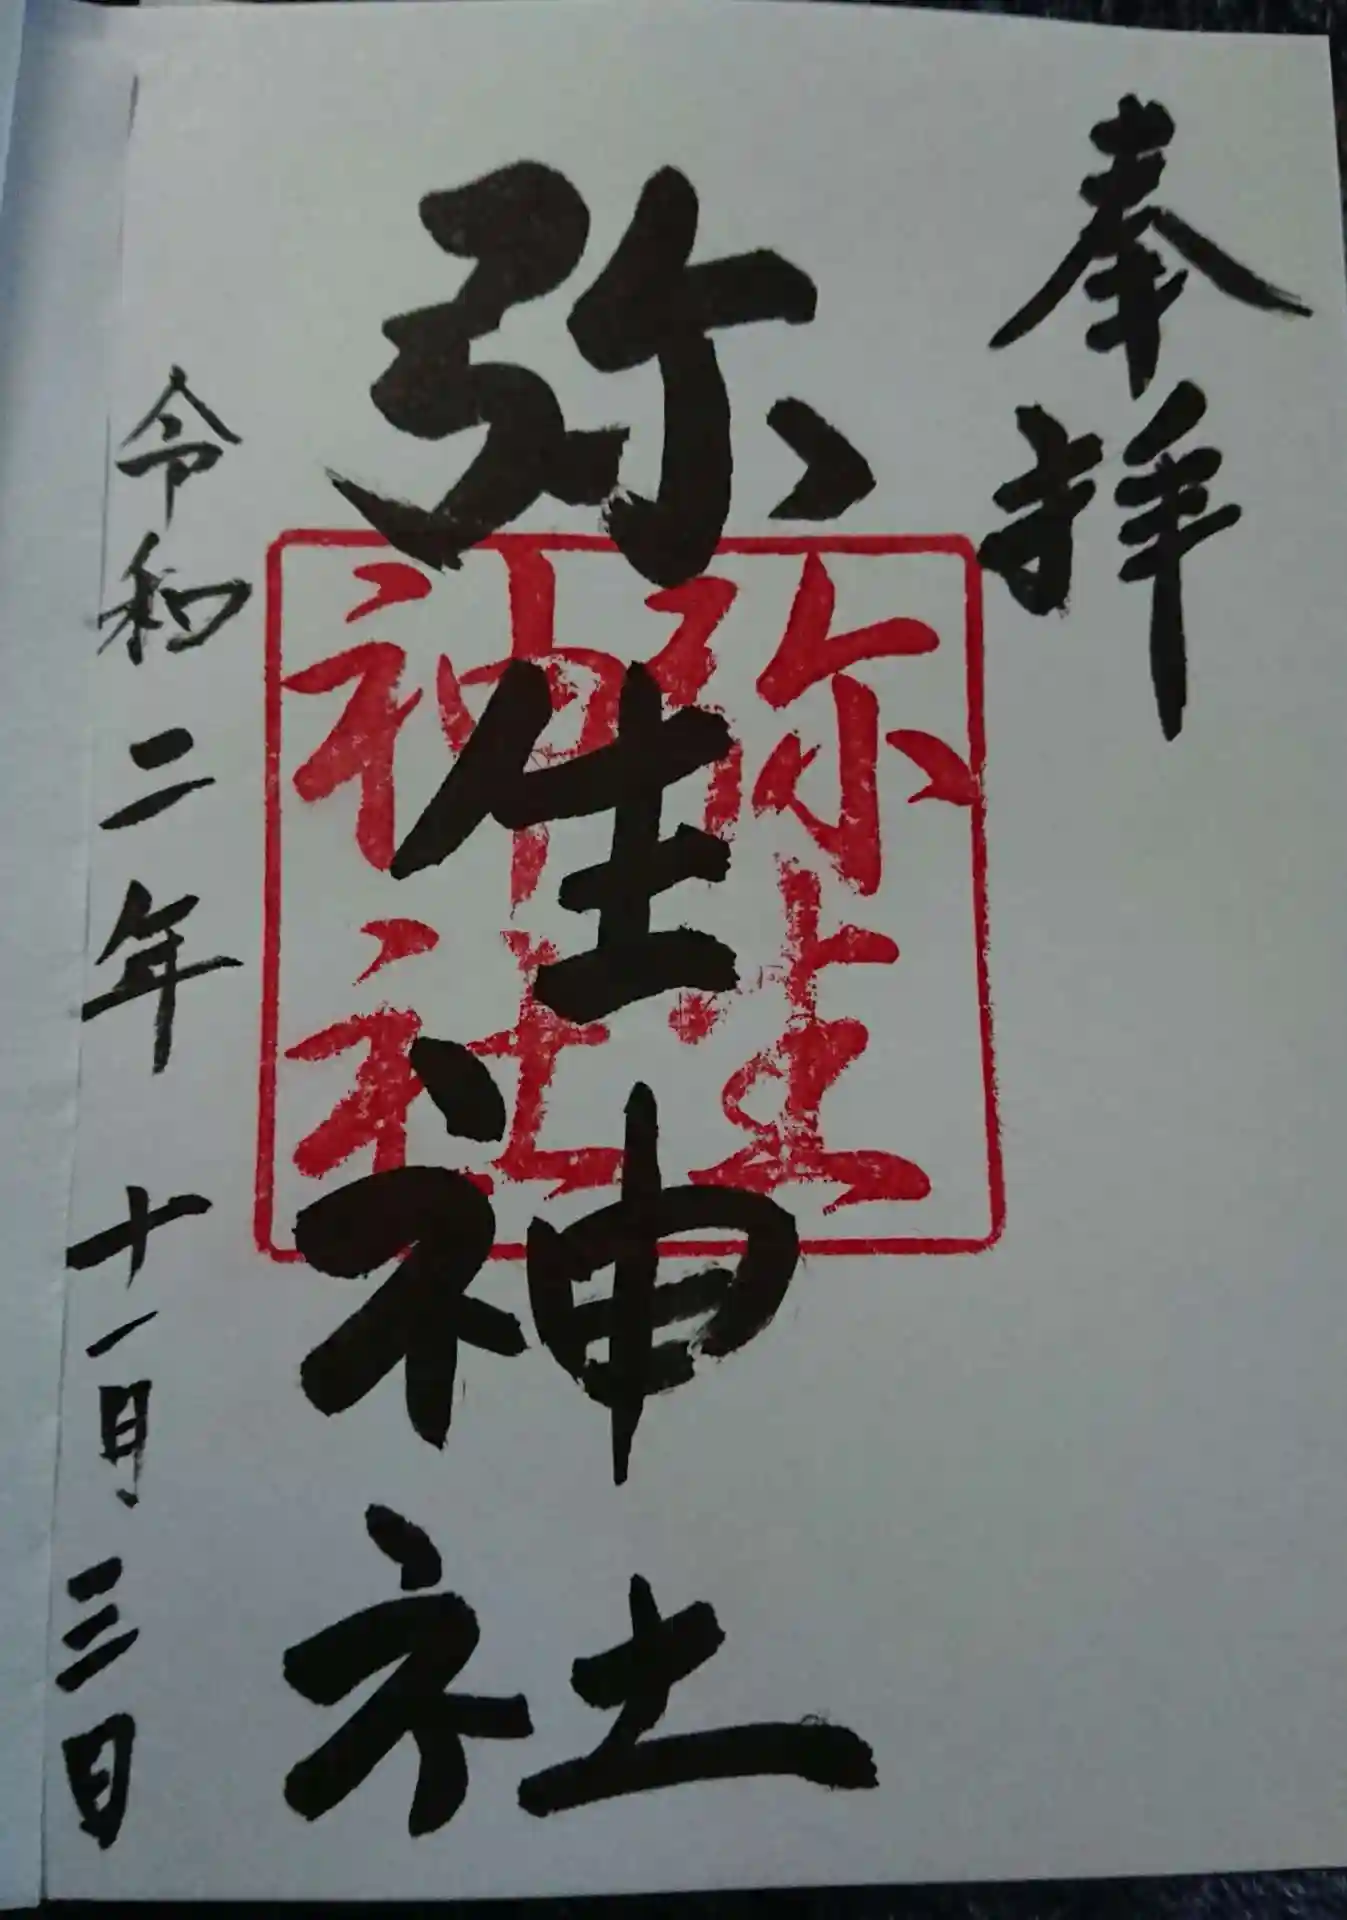 奉拝
弥生神社
弥生
神社
令和二年十一月三日